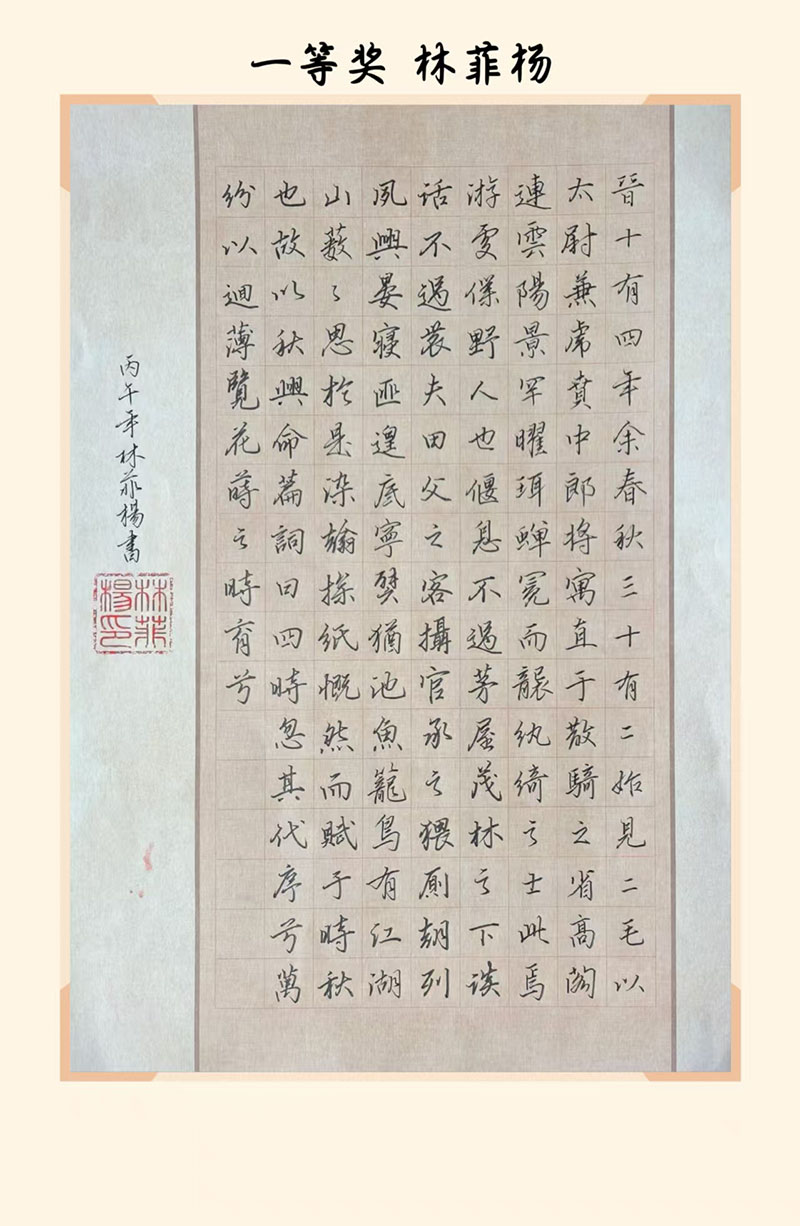 一等奖 林菲杨
晉十有四年余春秋三十有二始見二毛以
太尉兼虎賁中郎將寓直于散騎之省高閣
連雲陽景罕曜珥蟬冕而襲紈綺之士此焉
游處僕野人也偃息不過茅屋茂林之下談
話不過農夫田父之客攝官承之猥厠朝列
夙興晏寢匪遑底寧譬猶池魚籠鳥有江湖
山藪之思於是染翰操紙慨然而賦于時秋
也故以秋興命篇詞曰四時忽其代序兮萬
紛以迴薄覽花蒔之時育兮
丙午年林菲楊書
林菲
楊印